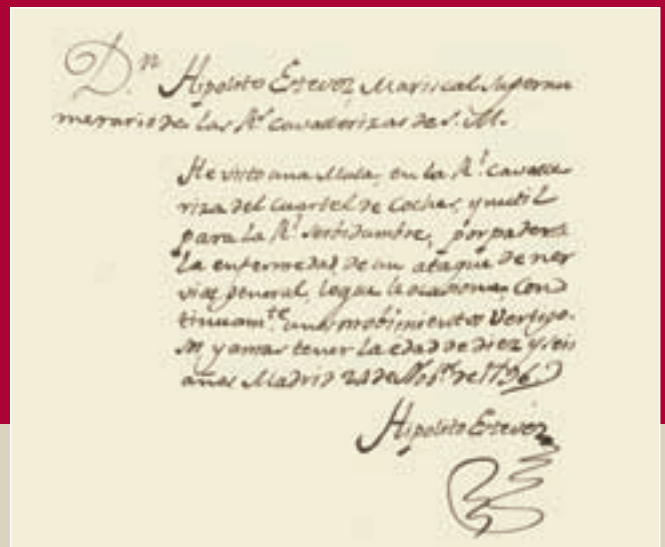 D.n Hipolito Estevez Mariscal Supernu
merario de las R.s cavallerizas de S. M.
He visto una Mula, en la R.l cavalle
riza del cuartel de Coches, ynutil
para la R.l serbidumbre, por padecer
la enfermedad de un ataque de ner
vios general, loque le ocasiona, Con
tinuam.te unos mobimientos Vertigo.
y amas tener la edad de diez y seis
años Madrid 24 de Nob.re de 1796
Hipolito Estevez